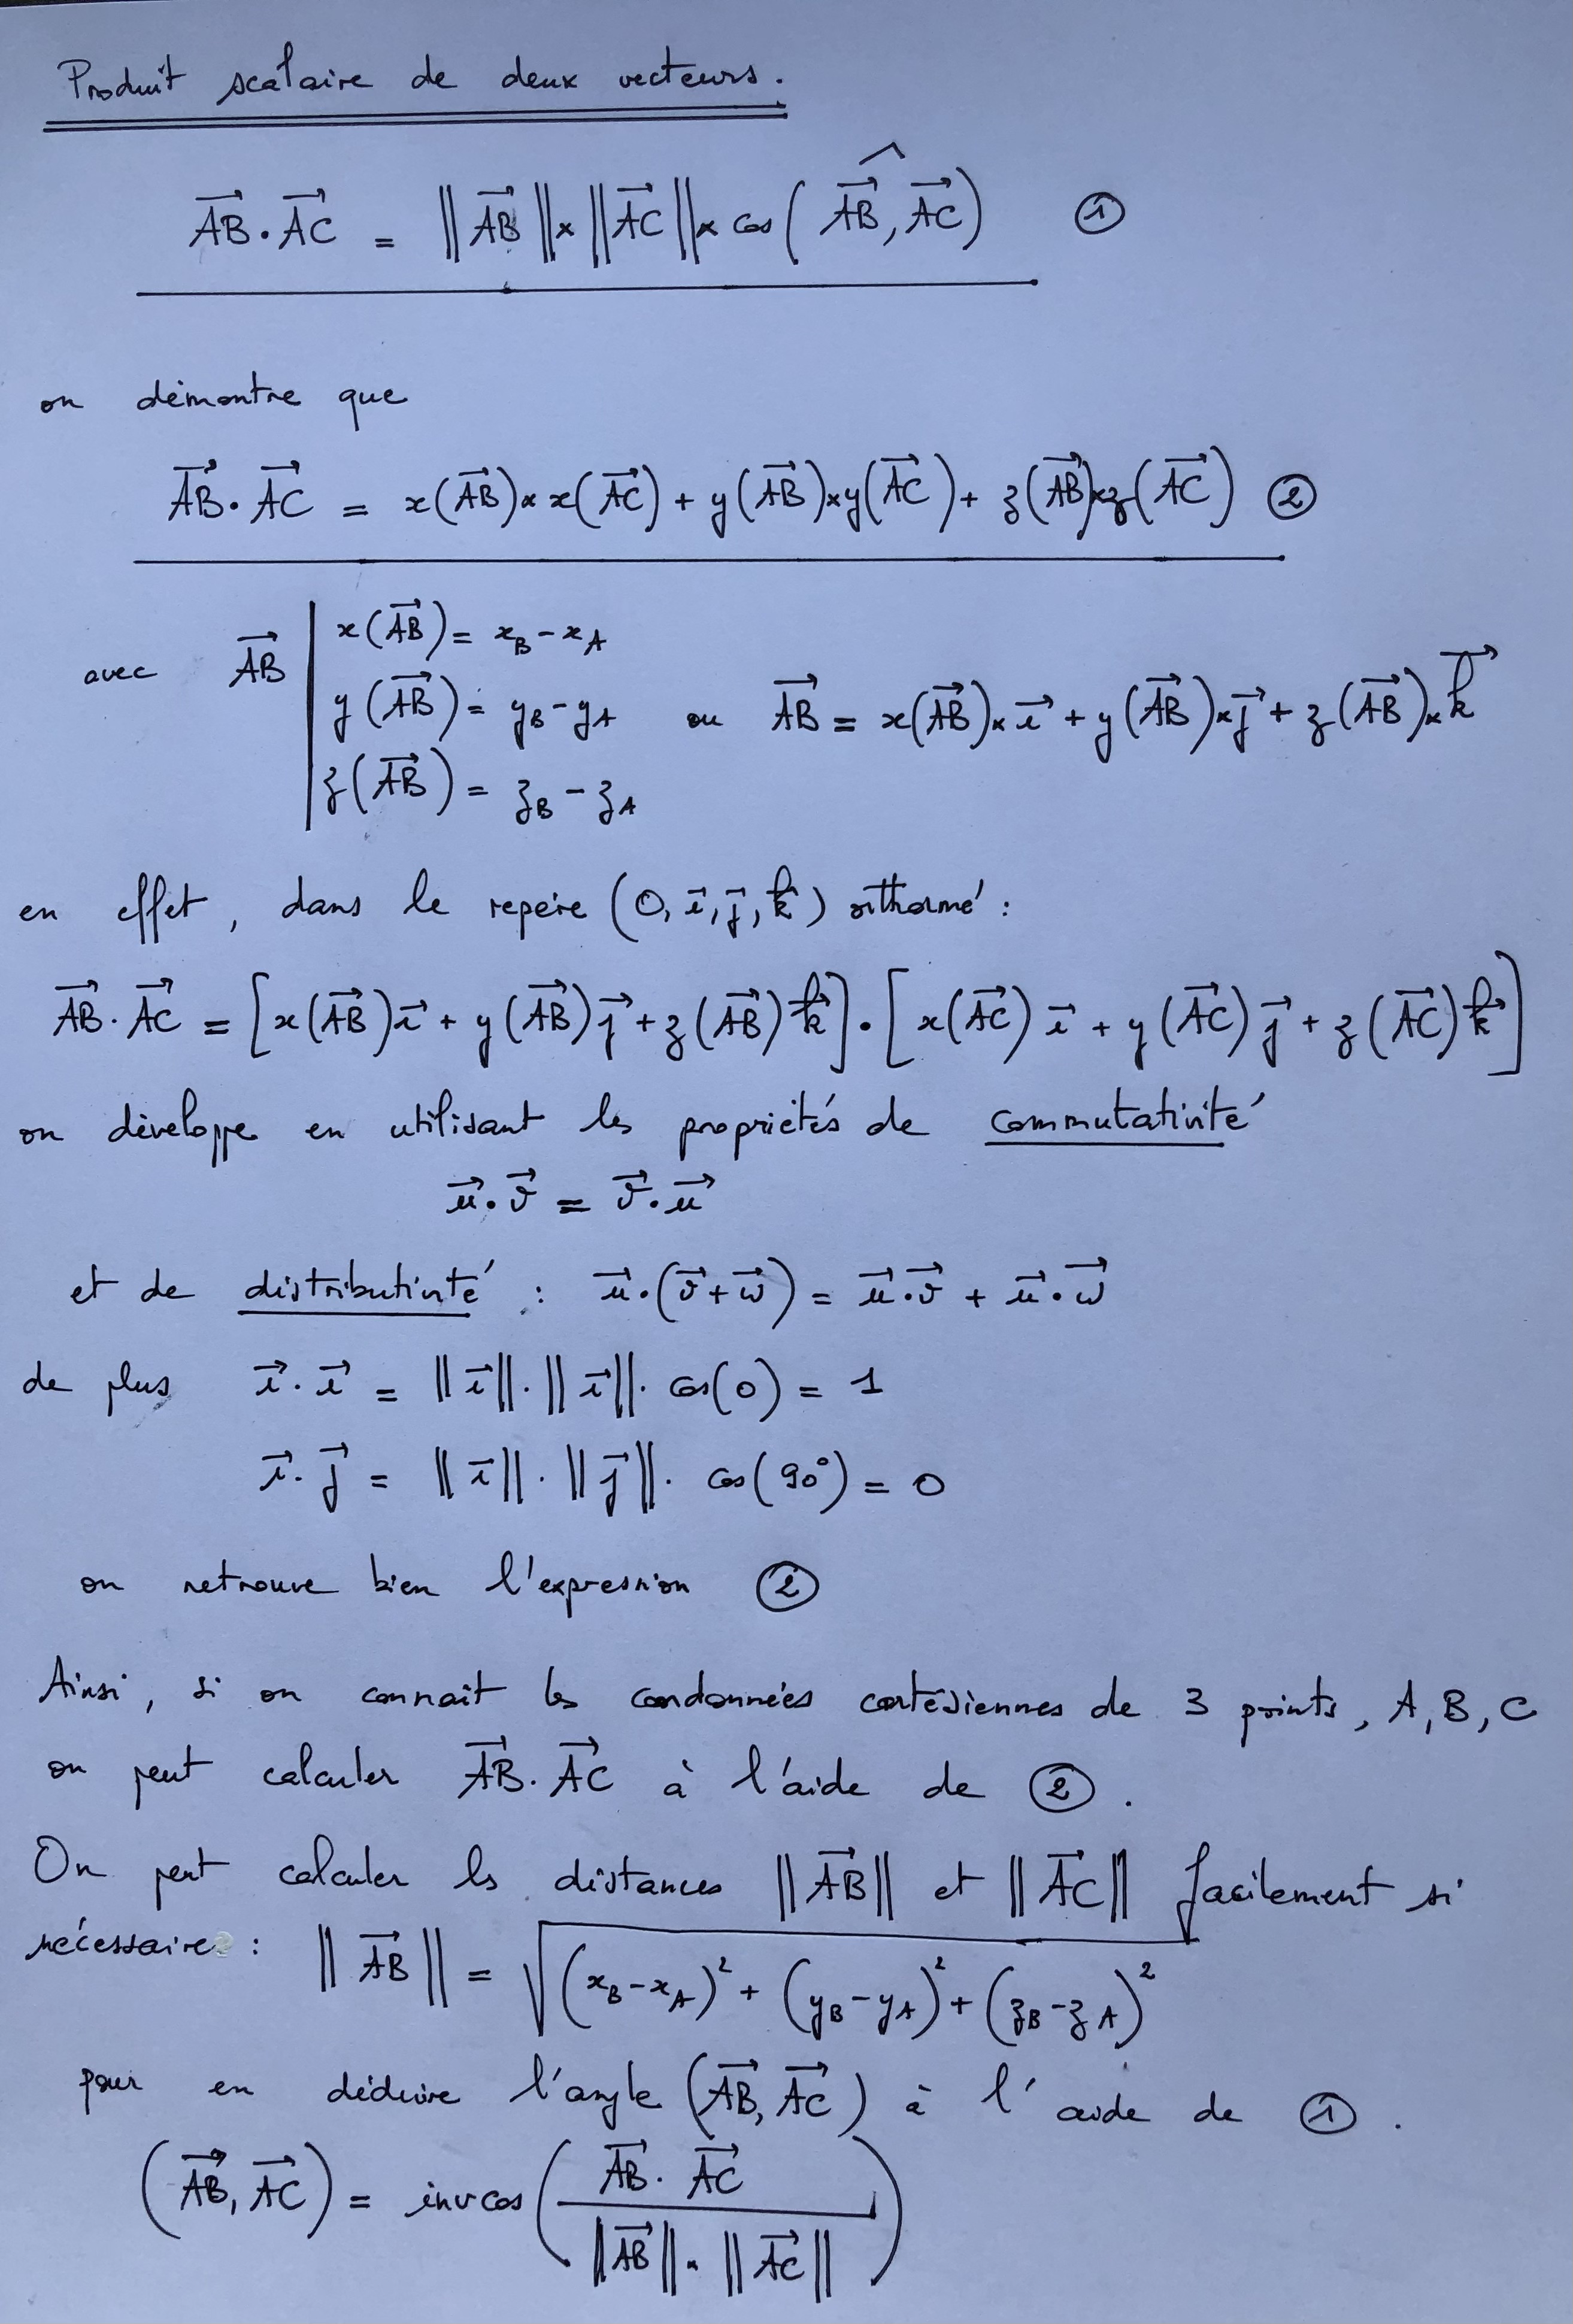 Produit scalaire de deux vecteurs.
$\overrightarrow{AB} \cdot \overrightarrow{AC} = \|\overrightarrow{AB}\| \times \|\overrightarrow{AC}\| \times \cos(\widehat{\overrightarrow{AB}, \overrightarrow{AC}})$ ①
on démontre que
$\overrightarrow{AB} \cdot \overrightarrow{AC} = x(\overrightarrow{AB}) \times x(\overrightarrow{AC}) + y(\overrightarrow{AB}) \times y(\overrightarrow{AC}) + z(\overrightarrow{AB}) \times z(\overrightarrow{AC})$ ②
$x(\overrightarrow{AB}) = x_B - x_A$
avec $\overrightarrow{AB}$ | $y(\overrightarrow{AB}) = y_B - y_A$ ou $\overrightarrow{AB} = x(\overrightarrow{AB}) \times \vec{i} + y(\overrightarrow{AB}) \times \vec{j} + z(\overrightarrow{AB}) \times \vec{k}$
$z(\overrightarrow{AB}) = z_B - z_A$
en effet, dans le repère $(O, \vec{i}, \vec{j}, \vec{k})$ orthormé :
$\overrightarrow{AB} \cdot \overrightarrow{AC} = [x(\overrightarrow{AB})\vec{i} + y(\overrightarrow{AB})\vec{j} + z(\overrightarrow{AB})\vec{k}] \cdot [x(\overrightarrow{AC})\vec{i} + y(\overrightarrow{AC})\vec{j} + z(\overrightarrow{AC})\vec{k}]$
on développe en utilisant les propriétés de commutativité
$\vec{u} \cdot \vec{v} = \vec{v} \cdot \vec{u}$
et de distributivité : $\vec{u} \cdot (\vec{v} + \vec{w}) = \vec{u} \cdot \vec{v} + \vec{u} \cdot \vec{w}$
de plus $\vec{i} \cdot \vec{i} = \|\vec{i}\| \cdot \|\vec{i}\| \cdot \cos(0) = 1$
$\vec{i} \cdot \vec{j} = \|\vec{i}\| \cdot \|\vec{j}\| \cdot \cos(90°) = 0$
on retrouve bien l'expression ②
Ainsi, si on connait les coordonnées cartésiennes de 3 points, A, B, C
on peut calculer $\overrightarrow{AB} \cdot \overrightarrow{AC}$ à l'aide de ②.
On peut calculer les distances $\|\overrightarrow{AB}\|$ et $\|\overrightarrow{AC}\|$ facilement si
nécessaire : $\|\overrightarrow{AB}\| = \sqrt{(x_B - x_A)^2 + (y_B - y_A)^2 + (z_B - z_A)^2}$
pour en déduire l'angle $(\overrightarrow{AB}, \overrightarrow{AC})$ à l'aide de ①.
$(\overrightarrow{AB}, \overrightarrow{AC}) = invcos\left(\frac{\overrightarrow{AB} \cdot \overrightarrow{AC}}{\|\overrightarrow{AB}\| \times \|\overrightarrow{AC}\|}\right)$